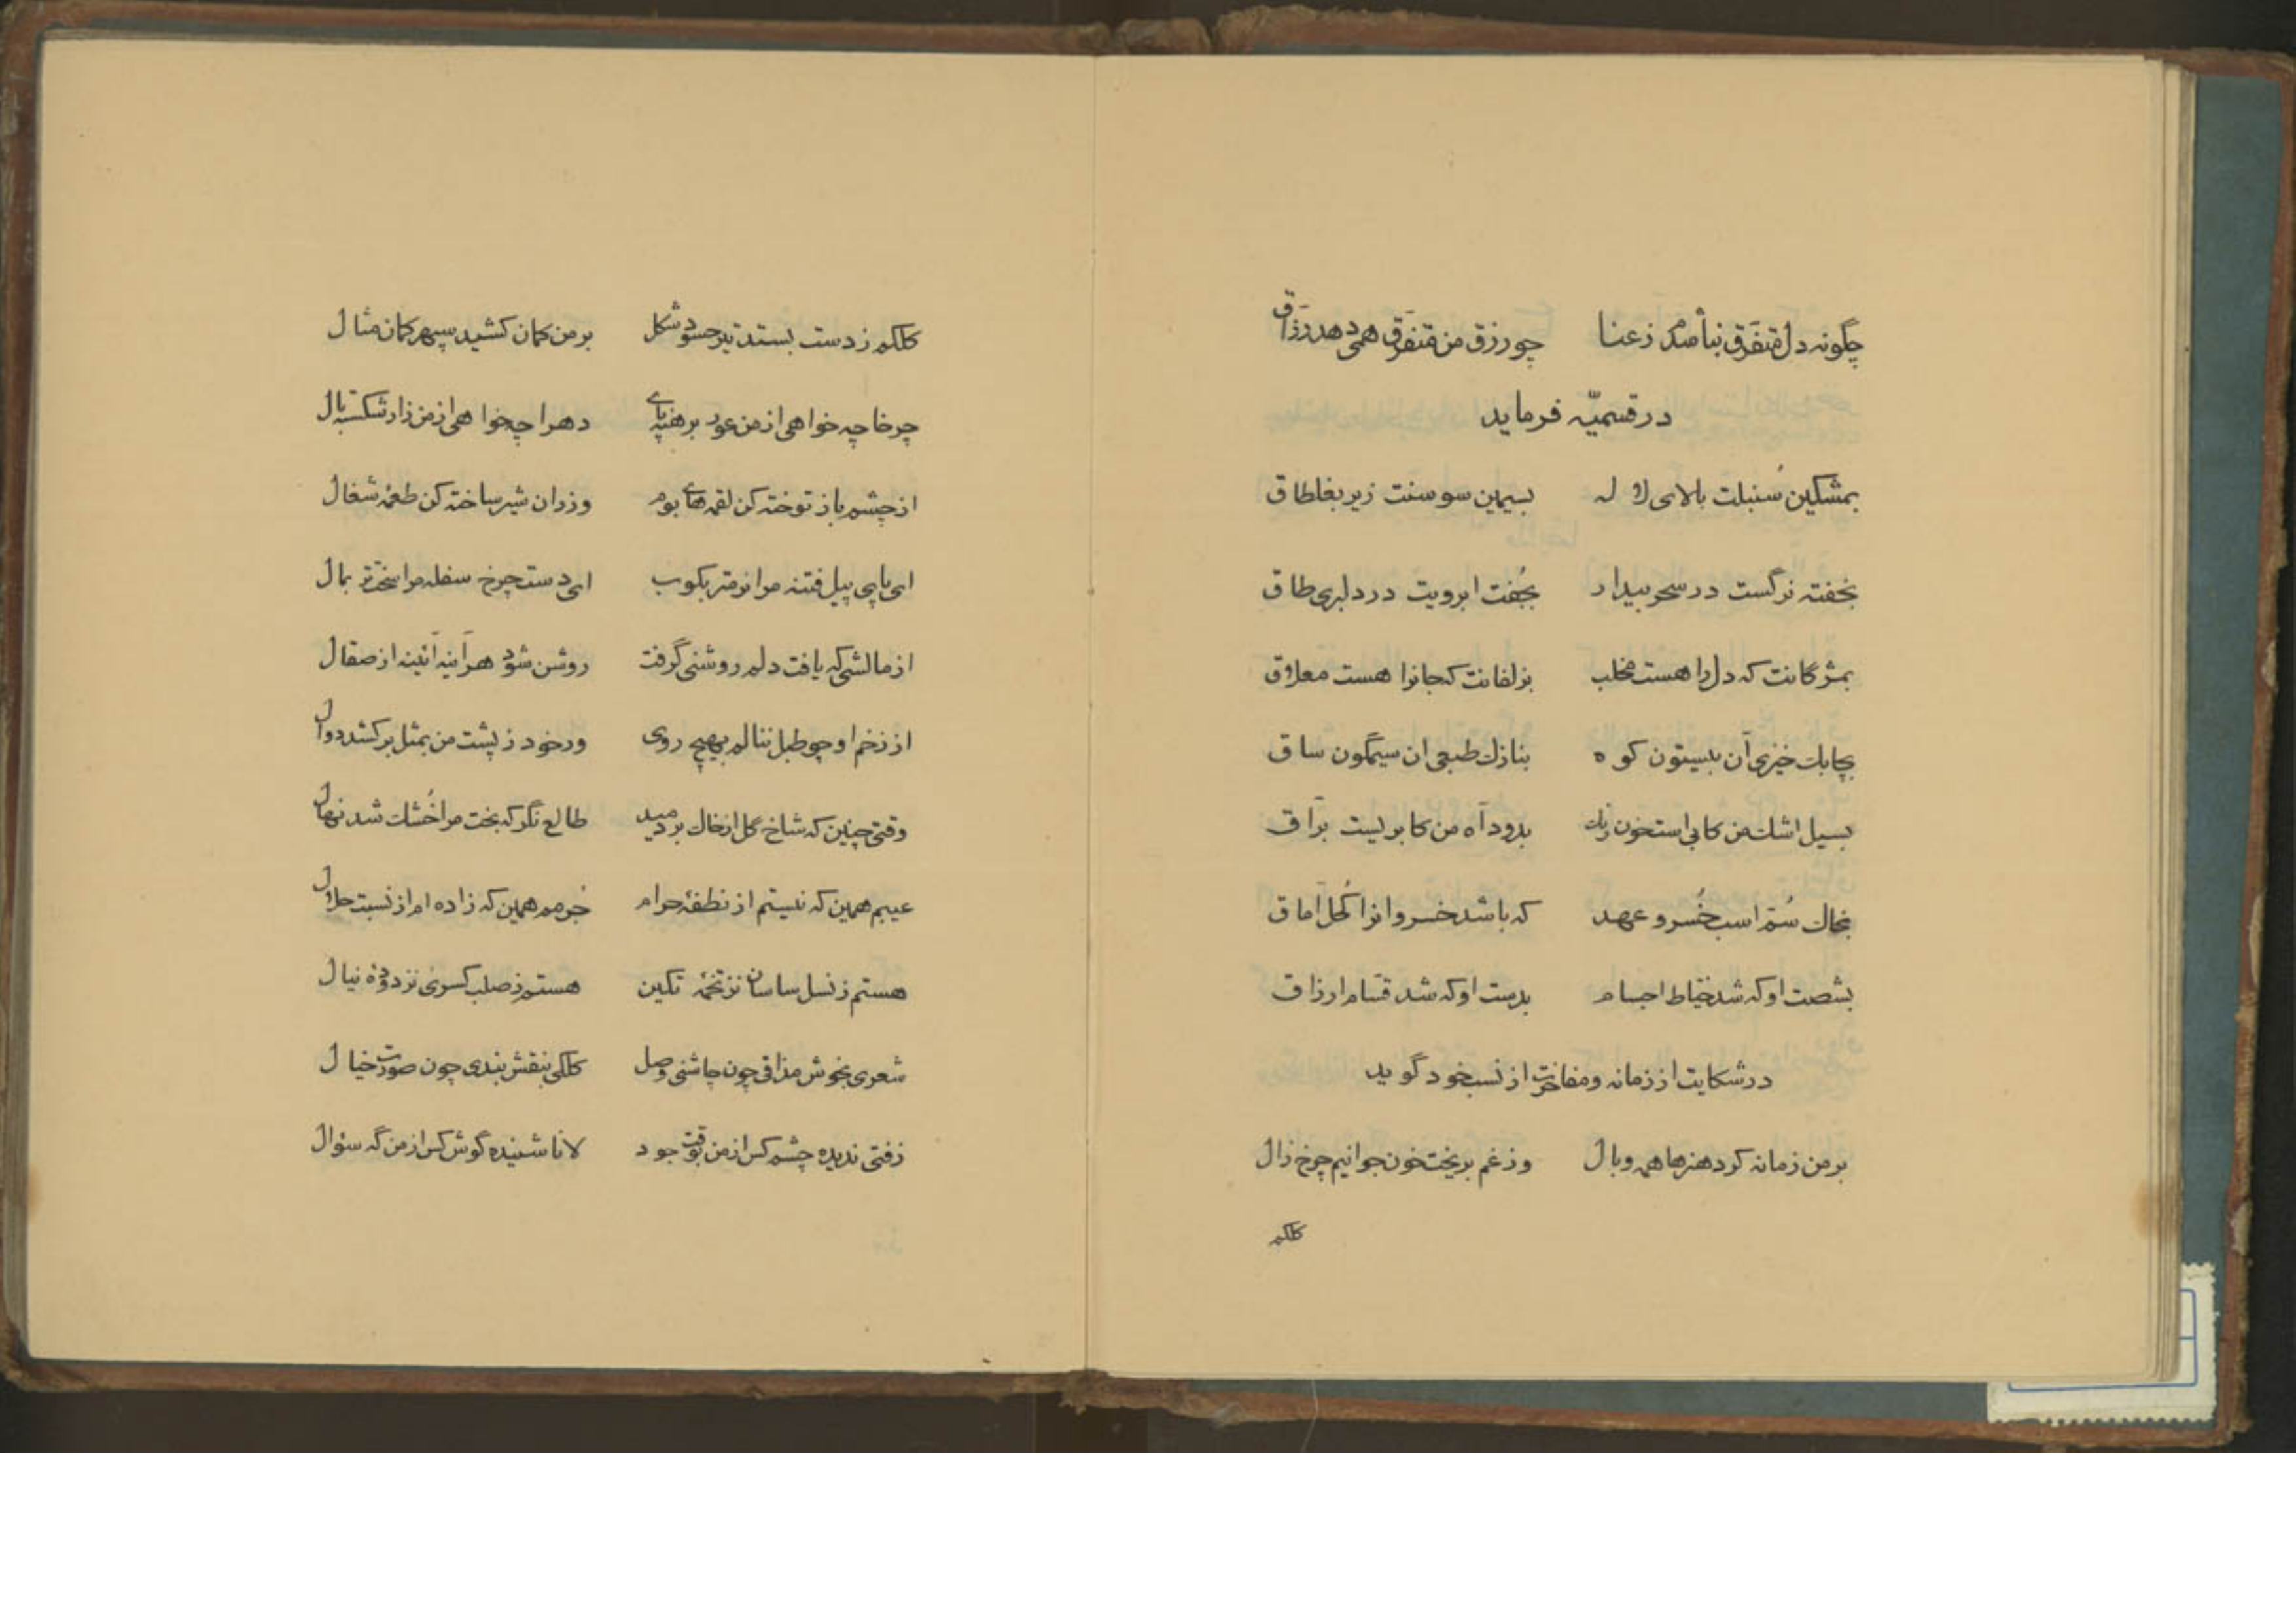 چگونه دل متفرق نباشدم ز عنا چو رزق من متفرق همی دهد رزاق
در قسمیّه فرماید
بمشکین سُنبلت بالای لاله بسیمین سوسنت زیر بغلطاق
بخفته نرگست در سحر بیدار بجُفت ابرویت در دلبری طاق
بمژگانت که دل را هست مخلب بزلفانت کجانرا هست معلاق
بچابک خیزی آن بیستون کوه بنازک طبعی ان سیمگون ساق
بسیل اشک من کابی است خون رنگ بدود آه من کابریست برّاق
بخاک سُم اسب خُسرو عهد که باشد خسروانرا کُحل آماق
بشصت او که شد خیّاط اجسام بدست او که شد قسّام ارزاق
در شکایت از زمانه و مفاخرت از نسب خود گوید
بر من زمانه کرد هنرها همه وبال وز غم بریخت خون جوانیم چرخ زال
کلکم
کلکم ز دست بستد تیر حسود شکل بر من کمان کشید سپهر کمان مثال
چرخا چه خواهی از من عور برهنه پای دهرا چه خواهی از من زار شکسته بال
از چشم باز توخته کن لقمهای بوم وز ران شیر ساخته کن طعمهٔ شغال
ای پای پیل فتنه مرا نرمتر بکوب ای دست چرخ سفله مرا سختتر بمال
از مالشی که یافت دلم روشنی گرفت روشن شود هرآینه آئینه از صقال
از زخم او چو طبل ننالم بهیچ روی ور خود ز پشت من بمثل بر کشد دوال
وقتی چنین که شاخ گل از خاک بر دمید طالع نگر که بخت مرا خُشک شد نهال
عیبم همین که نیستم از نطفهٔ حرام جُرمم همین که زاده ام از نسبت حلال
هستم ز نسل ساسان نز تخمهٔ تکین هستم ز صلب کسری نز دودهٔ نیال
شعری بخوش مذاقی چون چاشنی وصل کلکی بنقش بندی چون صورت خیال
زفتی ندیده چشم کس از من بوقت جود لا نا شنیده گوش کس از من گه سؤال